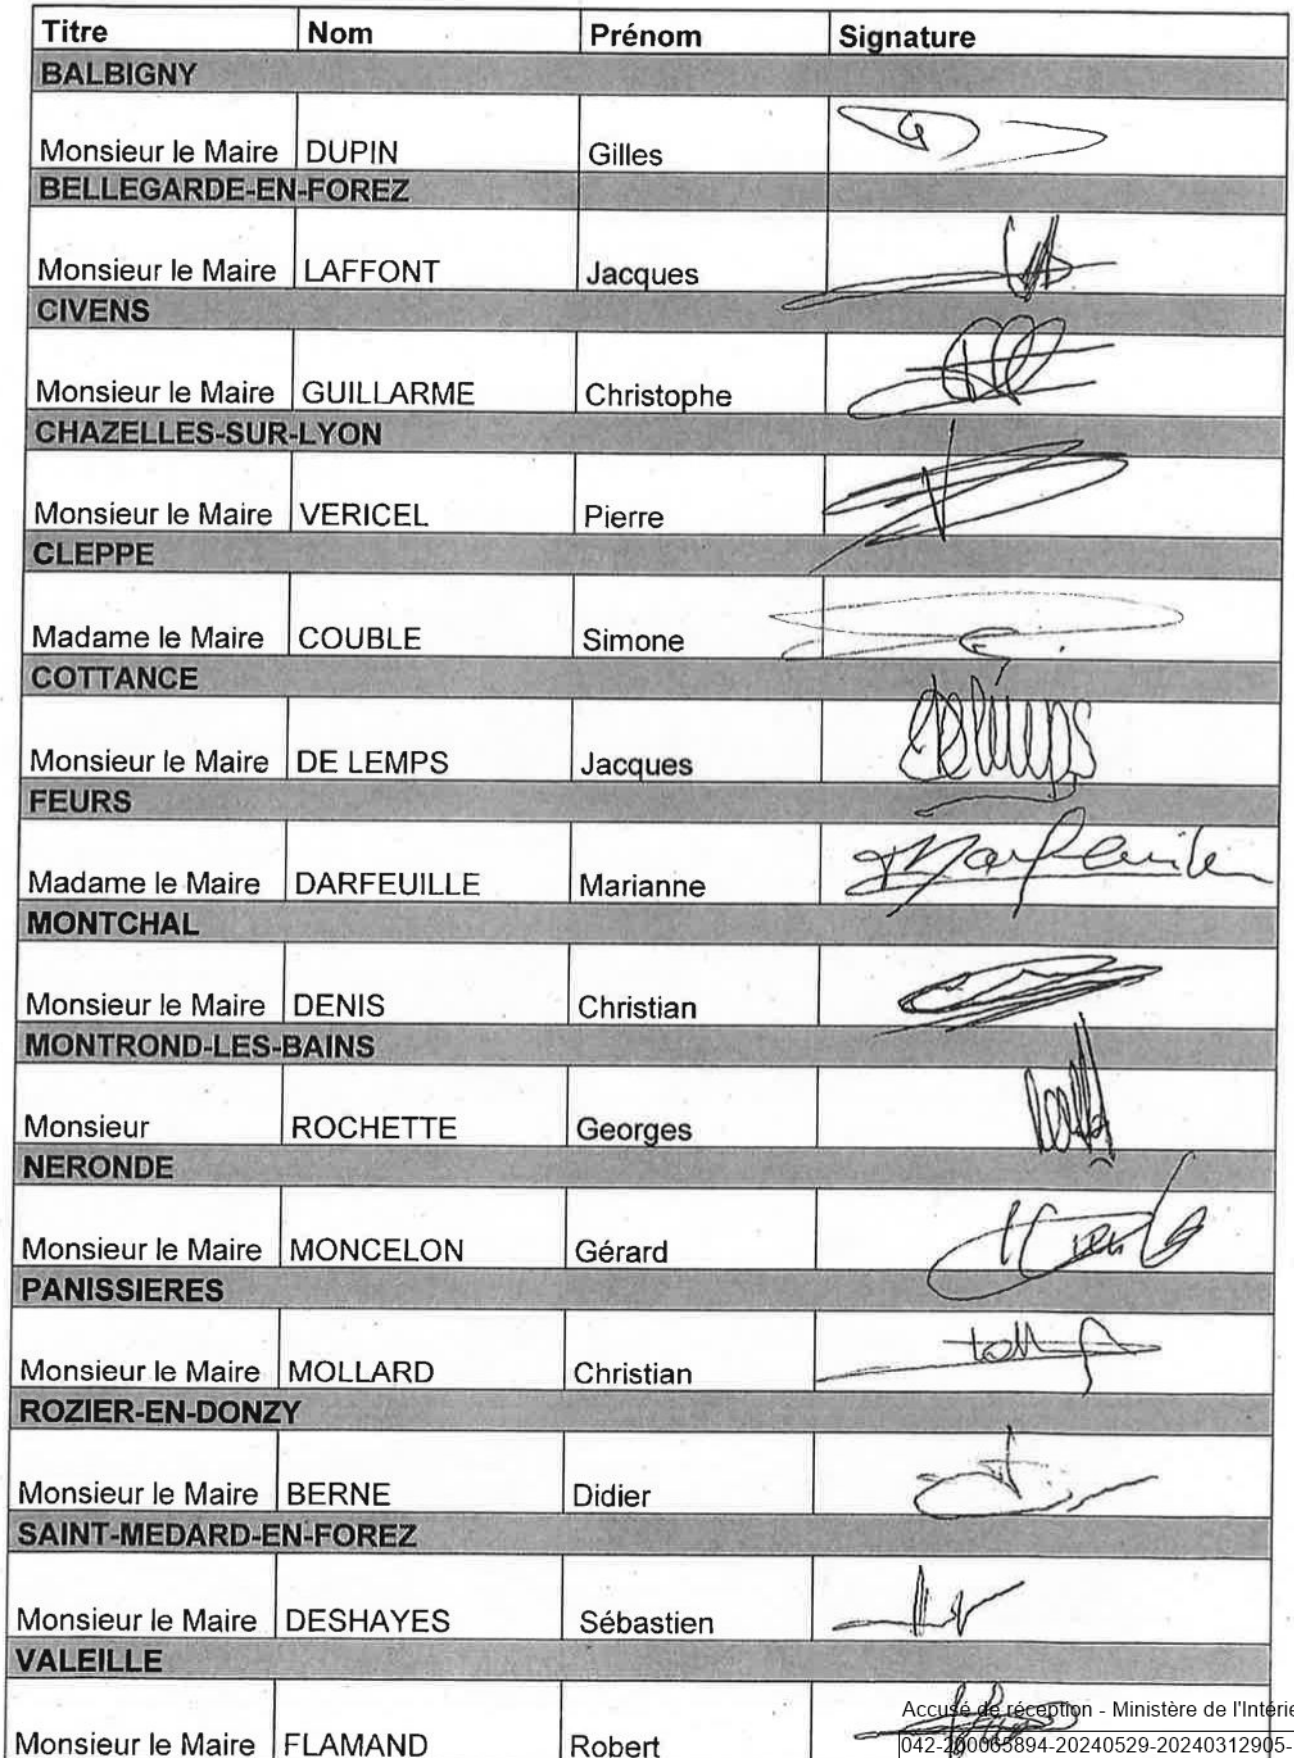 Titre Nom Prénom Signature
BALBIGNY
Monsieur le Maire DUPIN Gilles
BELLEGARDE-EN-FOREZ
Monsieur le Maire LAFFONT Jacques
CIVENS
Monsieur le Maire GUILLARME Christophe
CHAZELLES-SUR-LYON
Monsieur le Maire VERICEL Pierre
CLEPPE
Madame le Maire COUBLE Simone
COTTANCE
Monsieur le Maire DE LEMPS Jacques
FEURS
Madame le Maire DARFEUILLE Marianne
MONTCHAL
Monsieur le Maire DENIS Christian
MONTROND-LES-BAINS
Monsieur ROCHETTE Georges
NERONDE
Monsieur le Maire MONCELON Gérard
PANISSIERES
Monsieur le Maire MOLLARD Christian
ROZIER-EN-DONZY
Monsieur le Maire BERNE Didier
SAINT-MEDARD-EN-FOREZ
Monsieur le Maire DESHAYES Sébastien
VALEILLE
Accusé de réception - Ministère de l'Intérie
Monsieur le Maire FLAMAND Robert
042-200065894-20240529-20240312905-